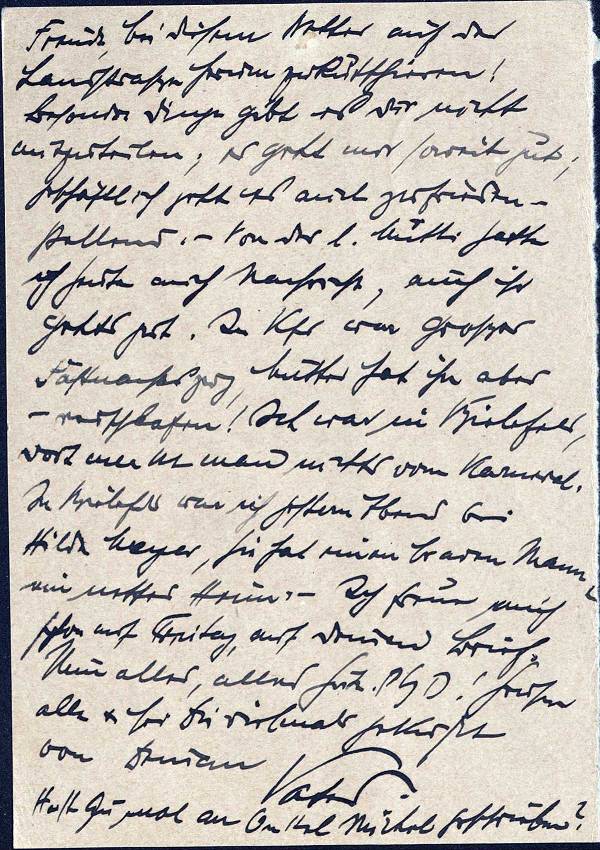 Freude, bei diesem Wetter auf der
Landstrasse herum zu kutschieren!
Besondere Dinge gibt es dir nicht
mitzuteilen; es geht mir soweit gut;
geschäftlich geht es auch zufrieden-
stellend. – Von der l. Mutti hatte
ich heute auch Nachricht, auch ihr
gehts gut. In Kfs war grosser
Fastnachtszug, Mutter hat ihn aber
– verschlafen! Ich war in Bielefeld,
dort merkt man nichts vom Karneval.
In Bielefeld war ich gestern Abend bei
Hilde Meyer, sie hat einen braven Mann u.
ein nettes Heim. – Ich freue mich
schon auf Freitag, auf deinen Brief.
Nun alles, alles Gute. ! Grüsse
alle & sei Du vielmals geküsst
von Deinem
Vater.
Hast Du mal an Onkel Michel geschrieben?